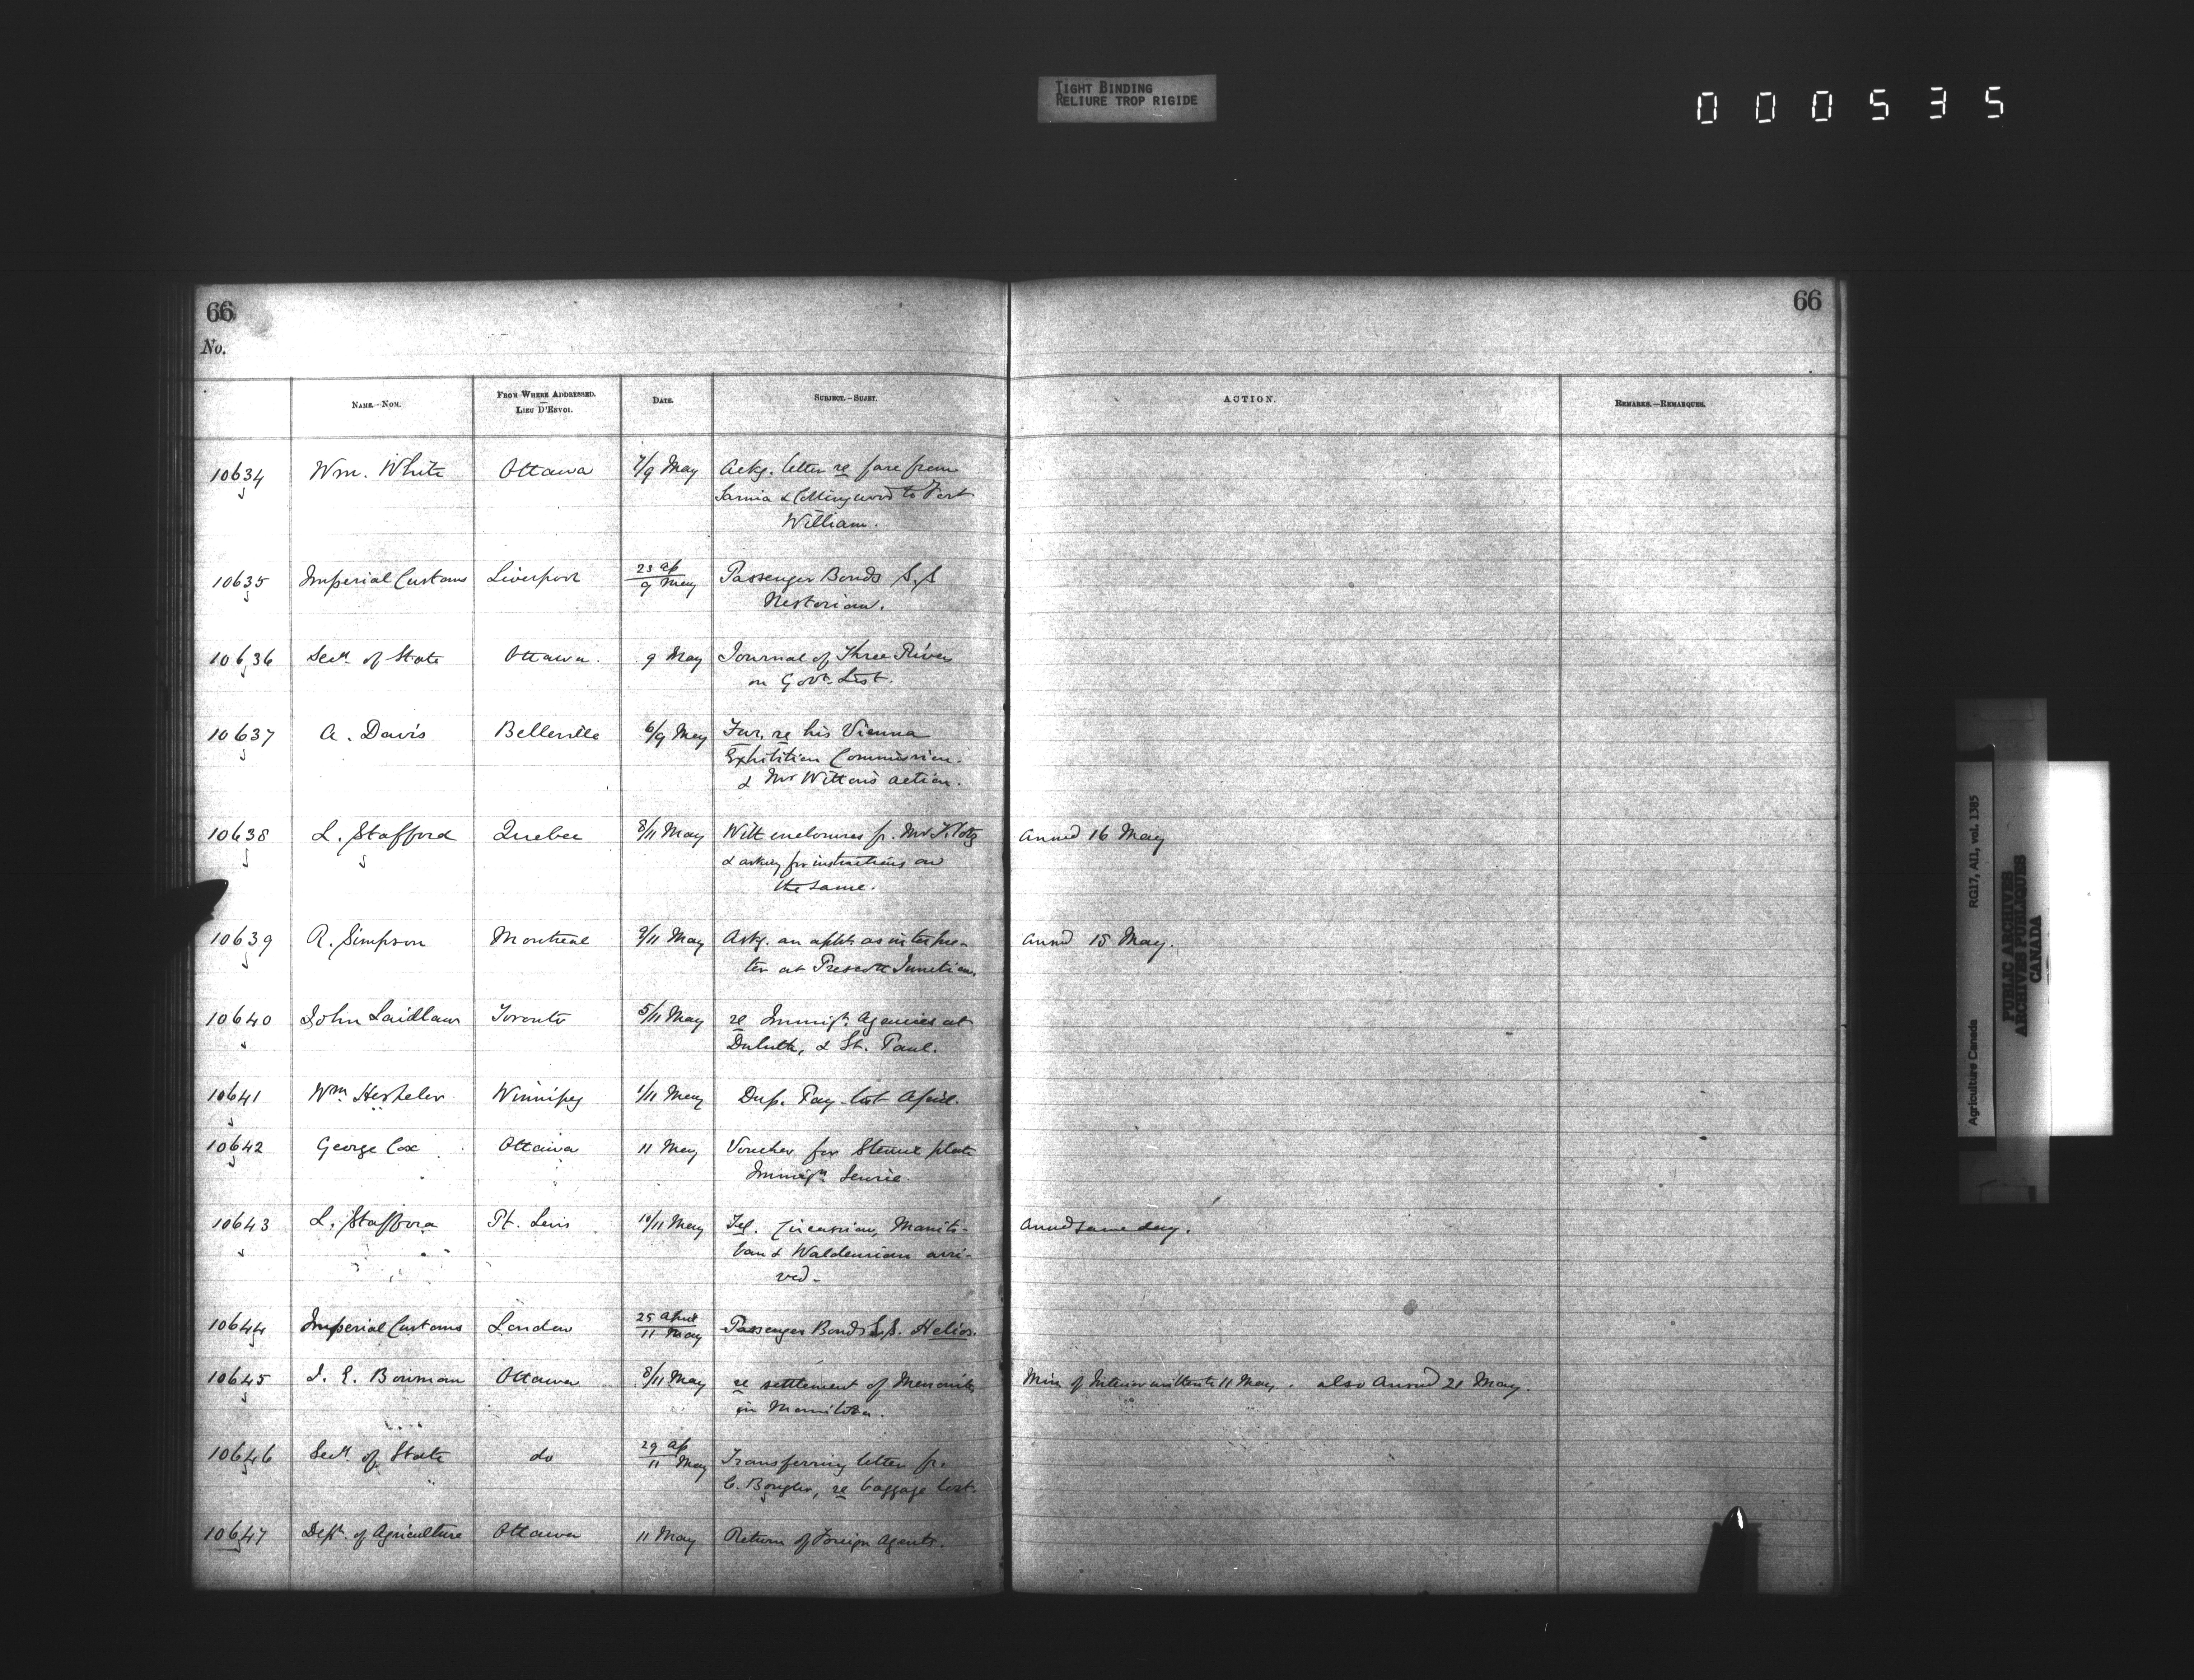 TIGHT BINDING
RELIURE TROP RIGIDE
000535
66
66
No.
NAME.—NOM.
FROM WHERE ADDRESSED.
LIEU D'ENVOI.
DATE.
SUBJECT.—SUJET.
ACTION.
REMARKS.—REMARQUES.
10634 Wm. White Ottawa 7/9 May Ackg. letter re fare from
Sarnia & Collingwood to Fort
William.
10635 Imperial Customs Liverpool 23 Ap/9 May Passenger Bonds S.S
Nestorian.
10636 Secy. of State Ottawa. 9 May Journal of Three Rivers
on Govt. List.
10637 A. Davis Belleville 6/9 May Fur. re his Vienna
Exhibition Commission.
& Mr Witton's action.
10638 L. Stafford Quebec 8/11 May With enclosures fr. Mr Klotz
& asking for instructions on
the same.
Answd 16 May
10639 R. Simpson Montreal 9/11 May Askg. an appt. as interpre-
ter at Prescott Junction.
Answd 15 May.
10640 John Laidlaw Toronto 5/11 May re Immigt. Agencies at
Duluth, & St. Paul.
10641 Wm. Hespeler Winnipeg 1/11 May Dup. Pay-list April.
10642 George Cox Ottawa 11 May Voucher for Stencil plate
Immign. Service.
10643 L. Stafford Pt. Levis 10/11 May Tel. Circassian, Manito-
ban & Waldensian arri-
ved.
Answd same day.
10644 Imperial Customs London 25 April/11 May Passenger Bonds S.S. Helios.
10645 I. E. Bowman Ottawa 8/11 May re settlement of Menonites
in Manitoba.
Min of Interior written to 11 May. also Answd 21 May.
10646 Secy. of State do 29 Ap/11 May Transferring letter fr.
C. re baggage lost.
10647 Dept. of Agriculture Ottawa 11 May Return of Foreign Agents.
Agriculture Canada RG17, AI1, vol. 1385
PUBLIC ARCHIVES
ARCHIVES PUBLIQUES
CANADA